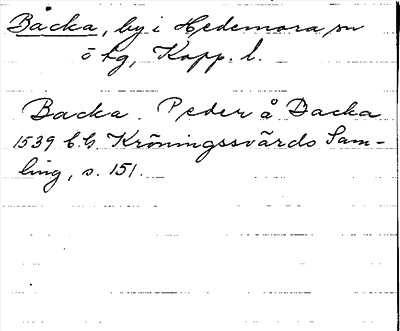 Backa, by i Hedemora sn
o tg, Kopp. l.
Backa. Peder å Backa
1539 C.G. Kröningssvärds Sam-
ling, s. 151.